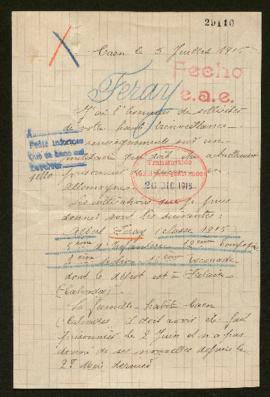 29110
Caen le 5 Juillet 1915
Fecho
e.a.e.
Feray
J'ai l'honneur de solliciter
de votre haute bienveillance
renseignements sur un
militaire qui doit être actuellement
prisonnier de guerre en
Allemagne
20 DIC 1915
Les indications que je puis
donner sont les suivantes :
Albert Feray classe 1915
d'Infanterie 12ème Compagnie
Escouade
dont le dépôt est à Falaise
(Calvados)
La famille habite Caen
(Calvados) Il doit avoir été fait
prisonnier le 2 Juin et n'a pas
donné de ses nouvelles depuis le
27 Mai dernier